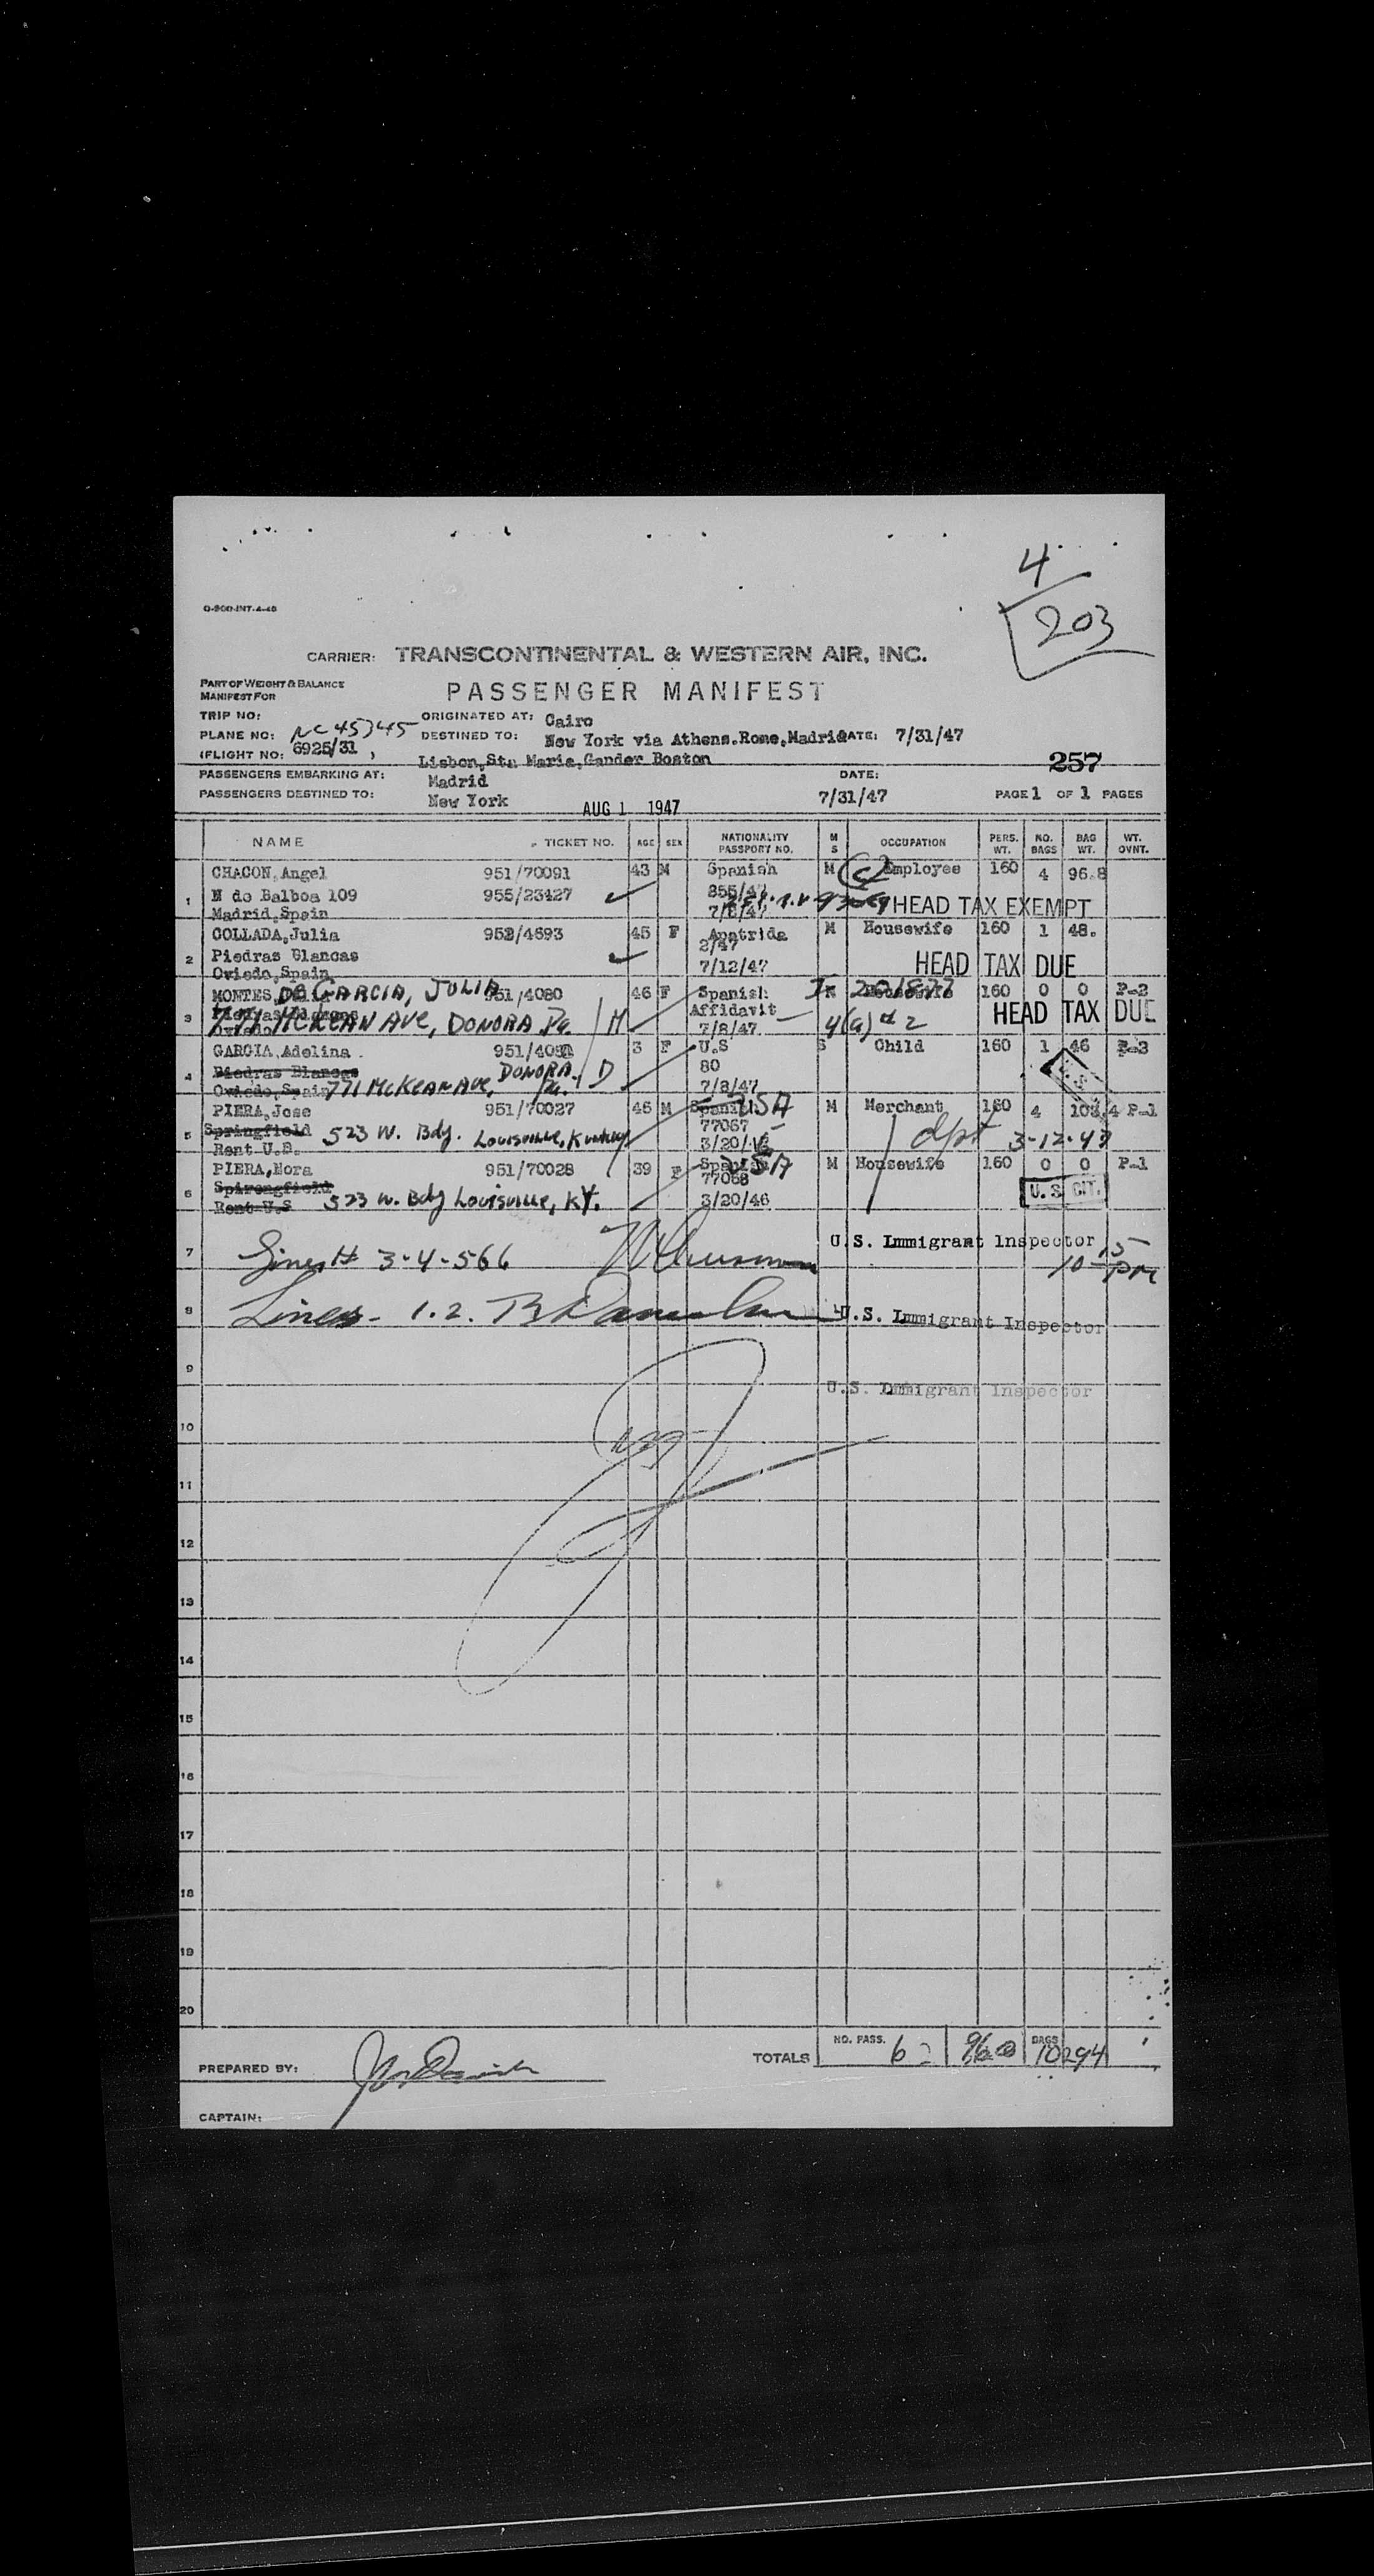 4
203
O-900-INT-4-46
CARRIER: TRANSCONTINENTAL & WESTERN AIR, INC.
PART OF WEIGHT & BALANCE
MANIFEST FOR
PASSENGER MANIFEST
TRIP NO: ORIGINATED AT: Cairo
PLANE NO: NC45345 DESTINED TO: New York via Athens.Rome,Madrid DATE: 7/31/47
(FLIGHT NO: 6925/31 ) Lisbon,Sta Maria,Gander Boston
257
PASSENGERS EMBARKING AT: Madrid DATE:
PASSENGERS DESTINED TO: New York AUG 1 1947 7/31/47 PAGE 1 OF 1 PAGES
NAME TICKET NO. AGE SEX NATIONALITY PASSPORT NO. M S OCCUPATION PERS. WT. NO. BAGS BAG WT. WT. OVNT.
CHACON,Angel 951/70091 43 M Spanish M Employee 160 4 96.8
1 N de Balboa 109 955/23427 855/47
Madrid,Spain 7/8/47 HEAD TAX EXEMPT
COLLADA,Julia 952/4693 45 F Apatrida M Housewife 160 1 48.
2 Piedras Blancas 2/47
Oviedo,Spain 7/12/47 HEAD TAX DUE
MONTES, DE GARCIA, JULIA 951/4080 46 F Spanish 160 0 0 P-2
3 771 McKEAN AVE, DONORA Pa. H Affidavit 4(a) # 2 HEAD TAX DUE
7/8/47
GARCIA,Adelina. 951/4081 3 F U.S S Child 160 1 46 P-3
4 Piedras Blancas DONORA, Pa. D 80
Oviedo,Spain 771 McKEAN AVE, 7/8/47
PIERA,Jose 951/70027 46 M Spanish USA M Merchant 160 4 103.4 P-1
5 Springfield 523 W. Bdy. Louisville, Kentucky 77067 dpt 3-12-47
Rent U.S. 3/20/46
PIERA,Nora 951/70028 39 F Spanish USA M Housewife 160 0 0 P-1
6 Spirengfield 77068 U.S. CIT.
Rent U.S 523 W. Bdy Louisville, KY. 3/20/46
7 Lines # 3-4-5&6 U.S. Immigrant Inspector 10 15 PM
8 Lines - 1.2. U.S. Immigrant Inspector
9 U.S. Immigrant Inspector
10
11
12
13
14
15
16
17
18
19
20
TOTALS NO. PASS. 6 960 BAGS 10 294
PREPARED BY:
CAPTAIN: